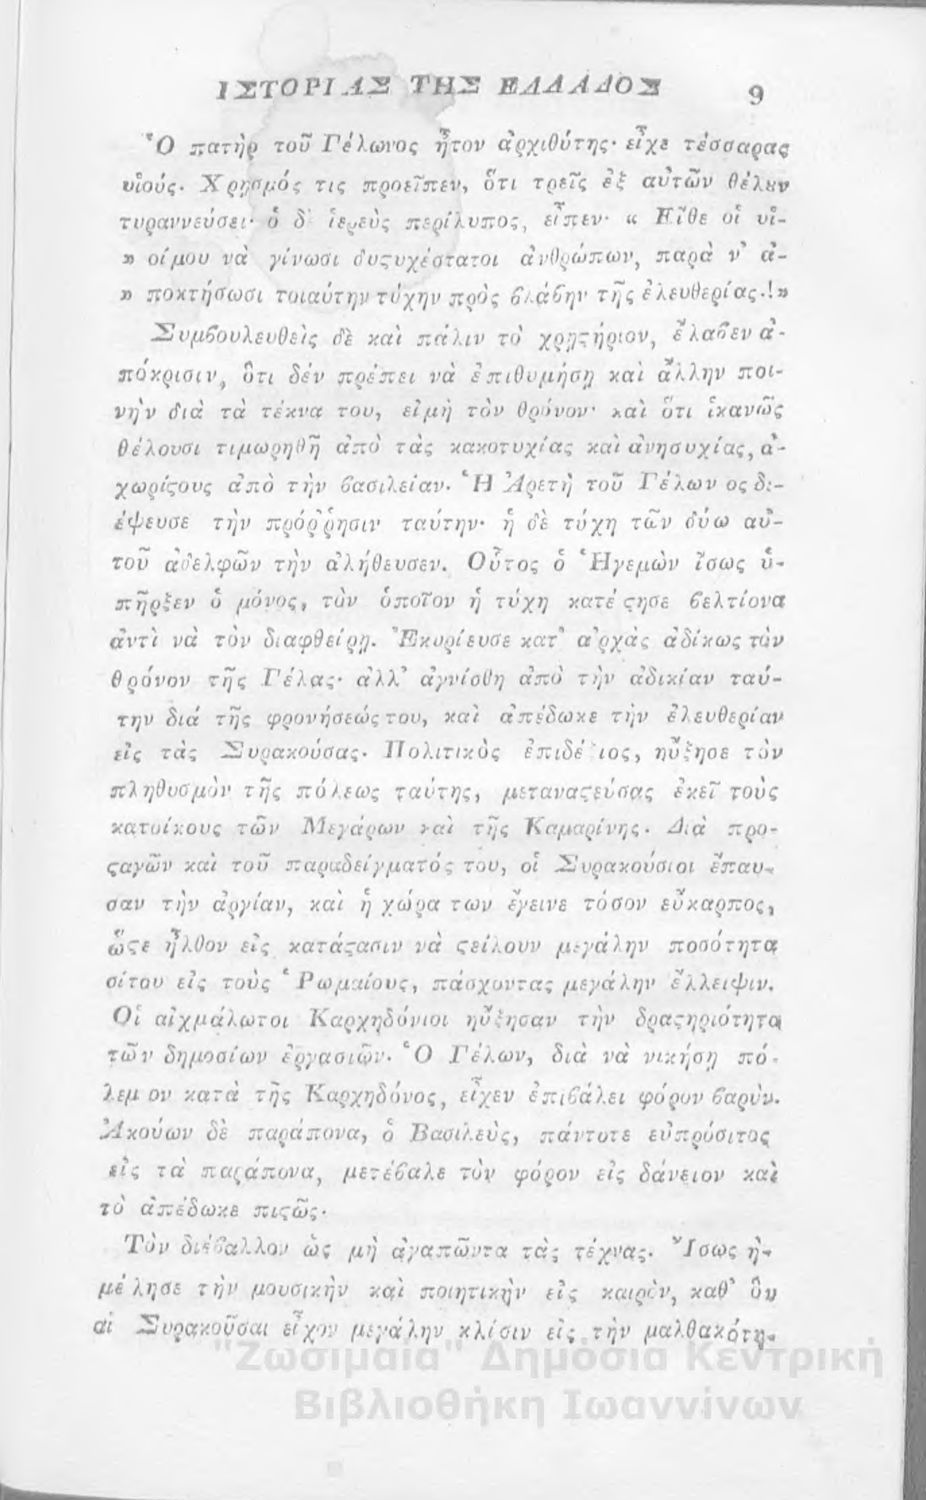 ΙΣΤΟΡΙΑΣ ΤΗΣ ΕΛΛΑΔΟΣ 9
Ὁ πατὴρ τοῦ Γέλωνος ἦτον ἀρχιθύτης· εἶχε τέσσαρας
υἱούς· Χρησμός τις προεῖπεν, ὅτι τρεῖς ἐξ αὐτῶν θέλȣν
τυραννεύσει· ὁ δ' ἱερεὺς περίλυπος, εἶπεν· « Εἴθε οἱ υἱ-
» οίμου νὰ γίνωσι δυςυχέστατοι ἀνθρώπων, παρὰ ν' ἀ-
» ποκτήσωσι τοιαύτην τύχην πρὸς βλάβην τῆς ἐλευθερίας.!»
Συμβουλευθεὶς δὲ καὶ πάλιν τὸ χρηϛήριον, ἔλαβεν ἀ-
πόκρισιν, ὅτι δέν πρέπει νὰ ἐπιθυμήσῃ καὶ ἄλλην ποι-
νὴν διὰ τὰ τέκνα του, εἰμὴ τὸν θρόνον· καὶ ὅτι ἱκανῶς
θέλουσι τιμωρηθῆ ἀπὸ τὰς κακοτυχίας καὶ ἀνησυχίας, ἀ-
χωρίϛους ἀπὸ τὴν βασιλείαν· Ἡ Ἀρετὴ τοῦ Γέλων ος δι-
έψευσε τὴν πρόῤῥησιν ταύτην· ἡ δὲ τύχη τῶν δύω αὐ-
τοῦ ἀδελφῶν τὴν ἀλήθευσεν. Οὗτος ὁ Ἡγεμὼν ἴσως ὑ-
πῆρξεν ὁ μόνος, τὸν ὁποῖον ἡ τύχη κατέϛησε βελτίονα
ἀντὶ νὰ τὸν διαφθείρῃ. Ἐκυρίευσε κατ' ἀρχὰς ἀδίκως τὸν
θρόνον τῆς Γέλας· ἀλλ' ἁγνίσθη ἀπὸ τὴν ἀδικίαν ταύ-
την διά τῆς φρονήσεώς του, καὶ ἀπέδωκε τὴν ἐλευθερίαν
εἰς τὰς Συρακούσας· Πολιτικὸς ἐπιδέξιος, ηὔξησε τὸν
πληθυσμὸν τῆς πόλεως ταύτης, μεταναϛεύσας ἐκεῖ τοὺς
κατοίκους τῶν Μεγάρων καὶ τῆς Καμαρίνης· Διὰ προ-
ϛαγῶν καὶ τοῦ παραδείγματός του, οἱ Συρακούσιοι ἔπαυ-
σαν τὴν ἀργίαν, καὶ ἡ χώρα των ἔγεινε τόσον εὔκαρπος,
ὥϛε ἦλθον εἰς κατάϛασιν νὰ ϛείλουν μεγάλην ποσότητα
σίτου εἰς τοὺς Ῥωμαίους, πάσχοντας μεγάλην ἔλλειψιν.
Οἱ αἰχμάλωτοι Καρχηδόνιοι ηὔξησαν τὴν δραϛηριότητα
τῶν δημοσίων ἐργασιῶν· Ὁ Γέλων, διὰ νὰ νικήσῃ πό-
λεμ ον κατὰ τῆς Καρχηδόνος, εἶχεν ἐπιβάλει φόρον βαρὺν.
Ἀκούων δὲ παράπονα, ὁ Βασιλεὺς, πάντοτε εὐπρόσιτος
εἰς τὰ παράπονα, μετέβαλε τὸν φόρον εἰς δάνειον καὶ
τὸ ἀπέδωκε πιϛῶς·
Τὸν διέβαλλον ὡς μὴ ἀγαπῶντα τὰς τέχνας. Ἴσως ἠ-
μέ λησε τὴν μουσικὴν καὶ ποιητικὴν εἰς καιρὸν, καθ' ὃν
αἱ Συρακοῦσαι εἶχον μεγάλην κλίσιν εἰς τὴν μαλθακότη-
"Ζωσιμαία" Δημόσια Κεντρική
Βιβλιοθήκη Ιωαννίνων